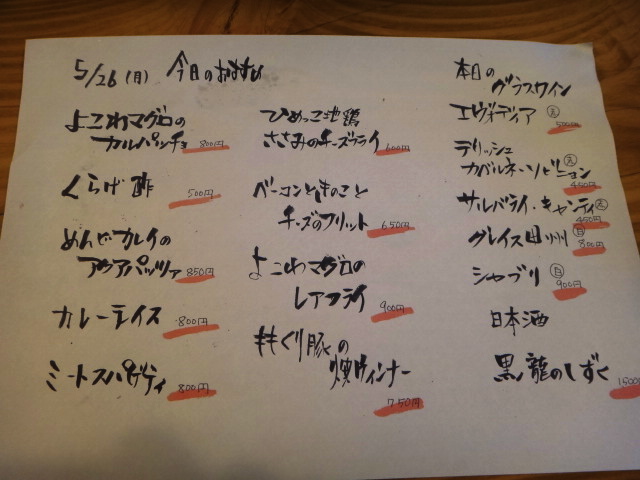 5/26 (月) 今日のおすすめ
よこわマグロの
カルパッチョ 800円
くらげ酢 500円
めんどカレイの
アクアパッツァ 850円
カレーライス 800円
ミートスパゲティ 800円
ひめっこ地鶏
ささみのチーズフライ 600円
ベーコンときのこと
チーズのフリット 650円
よこわマグロの
レアフライ 900円
ももくり豚の
燻製ウィンナー
750円
本日の
グラスワイン
エヴォディア 赤
500円
デリッシュ
カベルネ・ソービニョン 赤
450円
サルバライ・キャンティ 赤
450円
グレイス甲州 白
800円
シャブリ 白
900円
日本酒
黒龍のしずく
1500